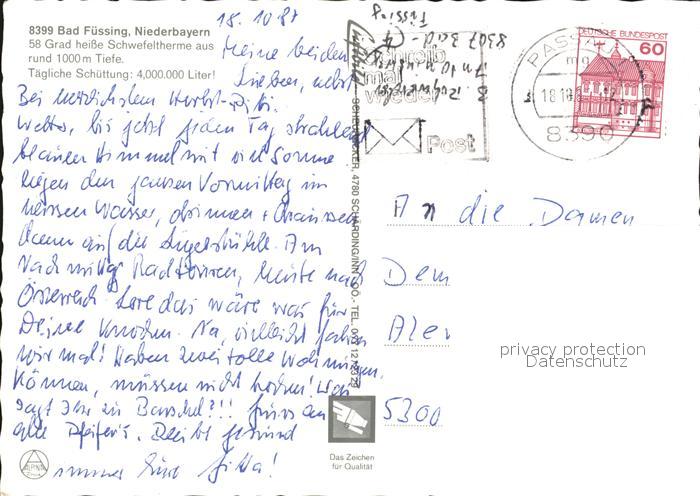 18. 10 87
8399 Bad Füssing, Niederbayern
58 Grad heiße Schwefeltherme aus
rund 1000 m Tiefe.
Tägliche Schüttung: 4,000.000 Liter!
Meine beiden
Lieben,
Bei herrlichstem Herbst-
Wetter, bis jetzt jeden Tag strahlend
blauen Himmel mit viel Sonne
liegen den ganzen Vormittag im
heissen Wasser, drinnen + draussen
dann auf die Liegestühle. Am
Nachmittag Radtouren, heute nach
Österreich. Lore das wäre was für
Deine Knochen. Na, vielleicht fahren
wir mal! Haben zwei tolle Wohnungen.
können, müssen nicht
sagt Ihr zu Barschel?!! Grüss an
alle Pfeifer's. Bleibt gesund
immer Eure Gitta!
Schreib
mal
wieder
Post
PASSAU
mg
8390
DEUTSCHE BUNDESPOST
60
An die Damen
Dem
Aler
5300
4780 SCHÄRDING/INN
Das Zeichen
für Qualität
privacy protection
Datenschutz